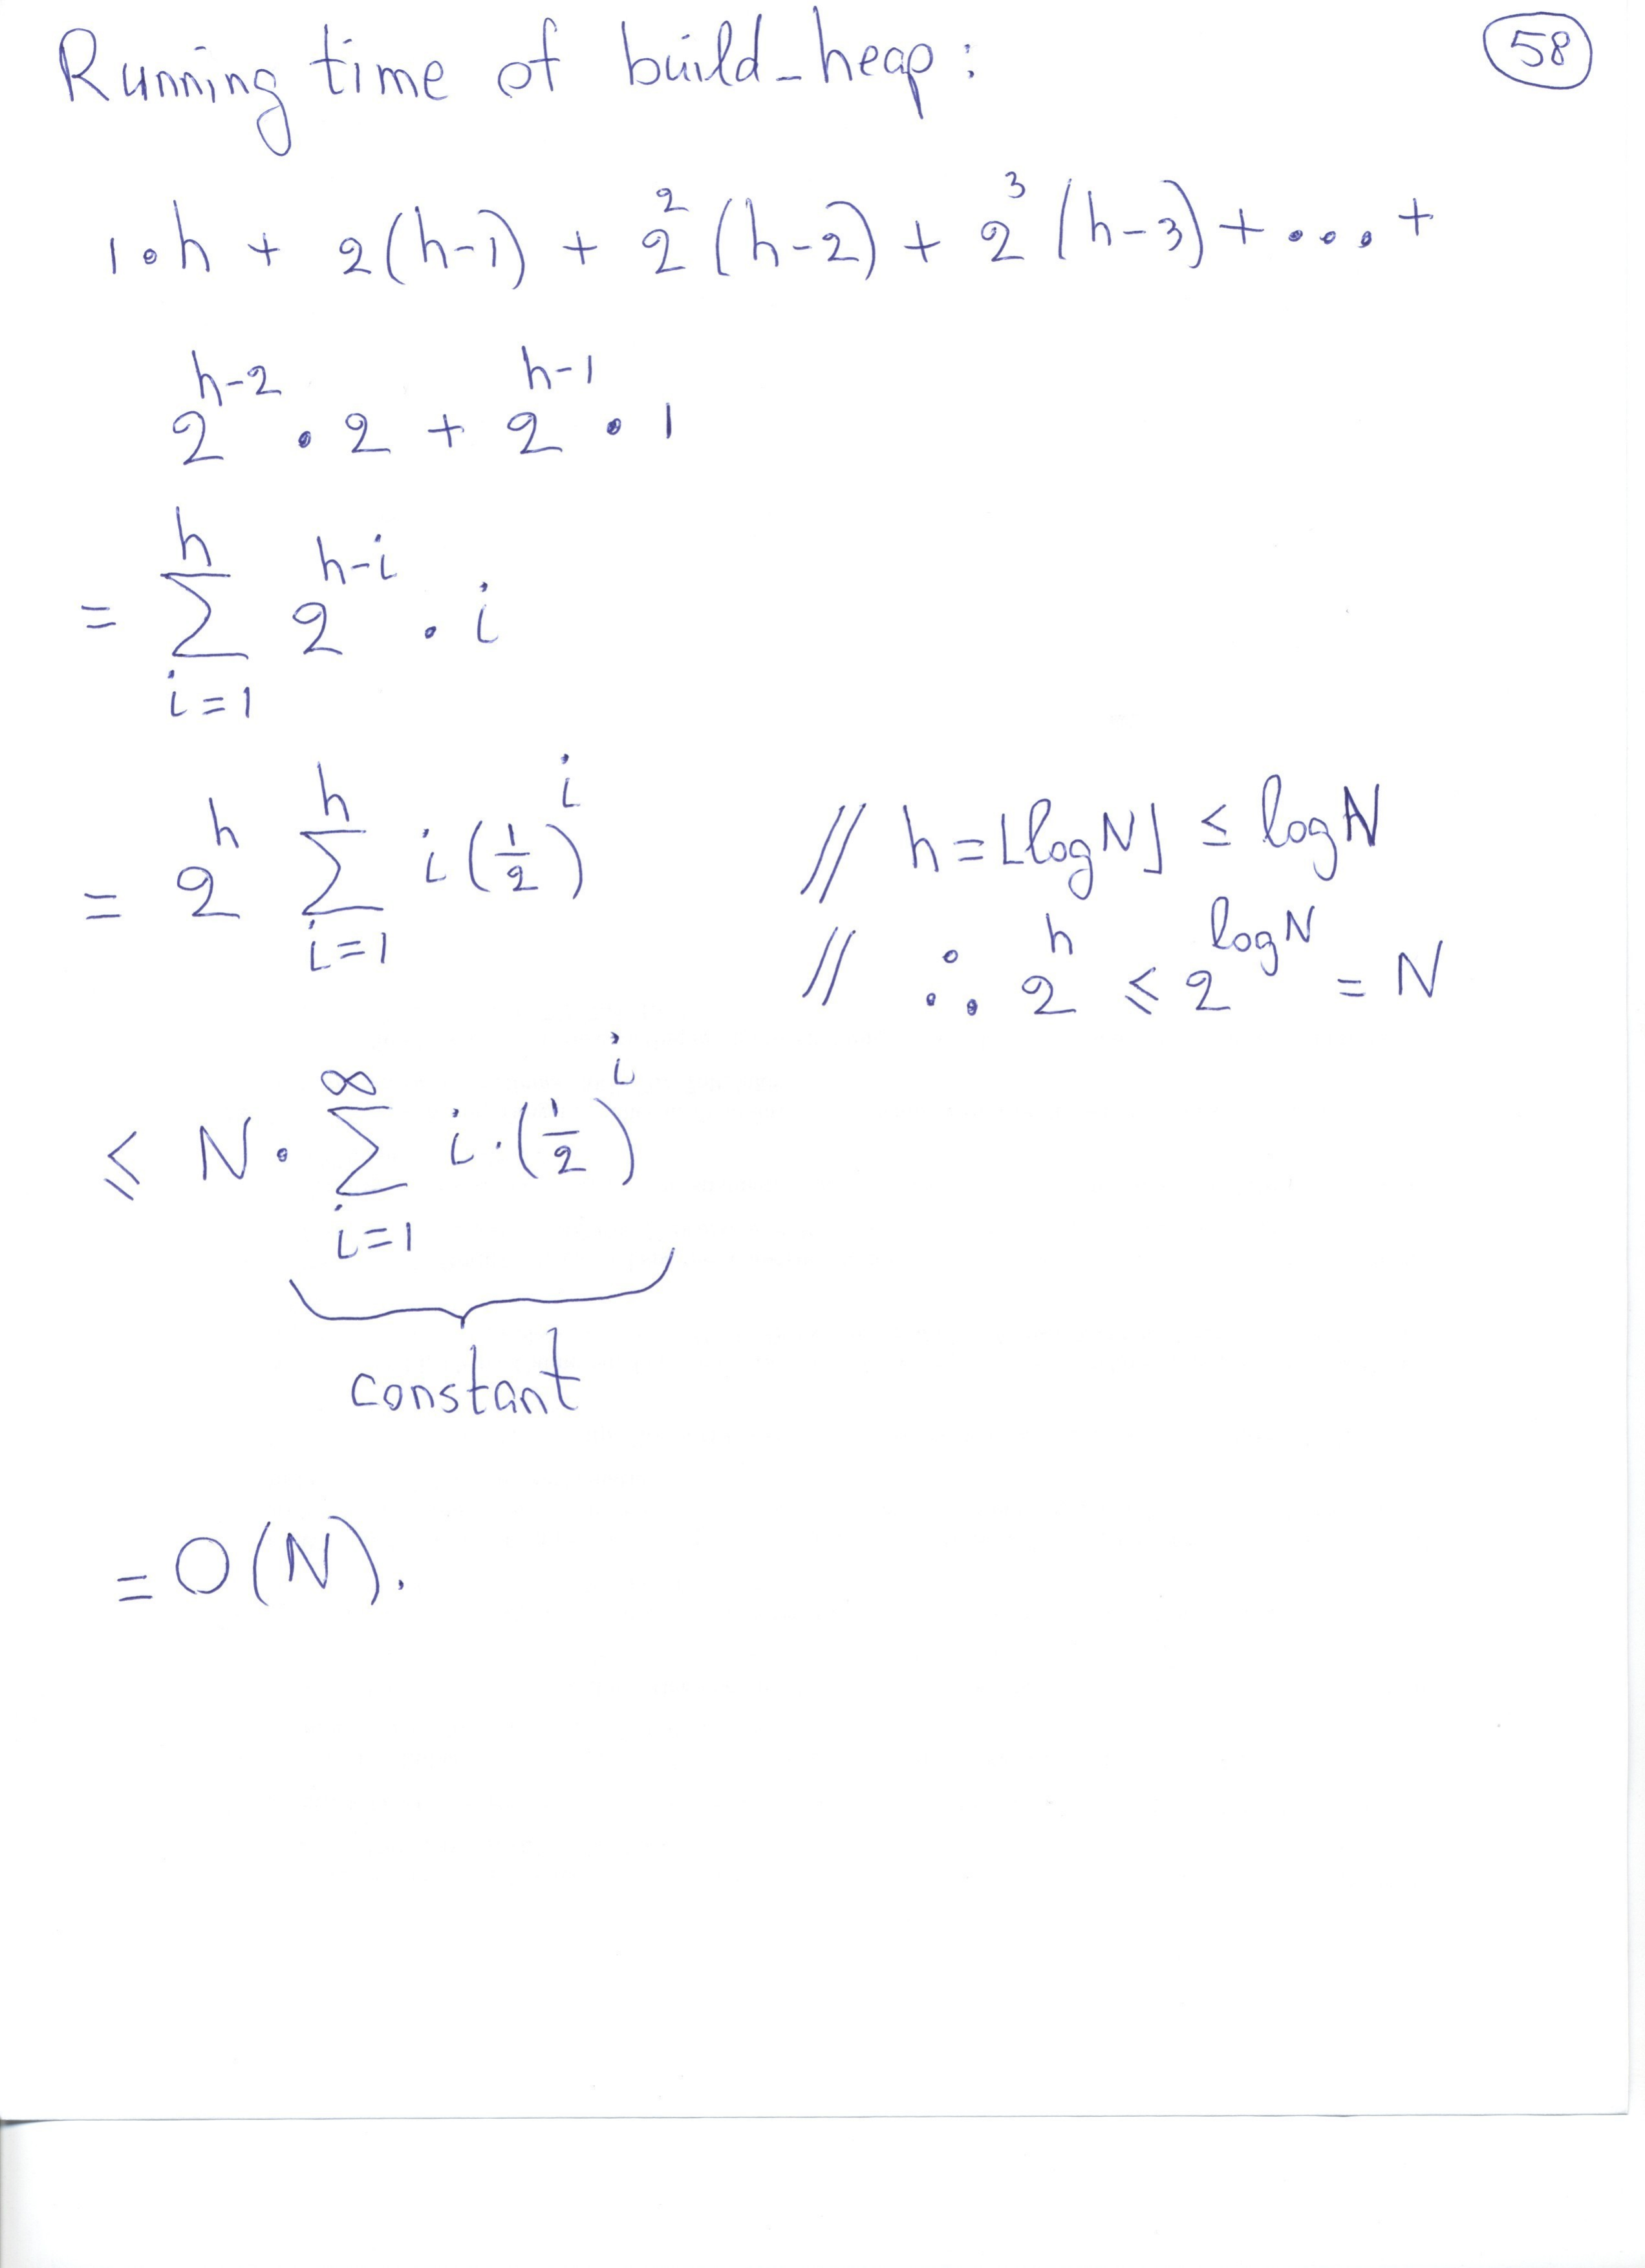 Running time of build-heap: 58
1•h + 2(h-1) + 2²(h-2) + 2³(h-3) + .... +
2^(h-2) • 2 + 2^(h-1) • 1
= ∑_{i=1}^{h} 2^(h-i) • i
= 2^h ∑_{i=1}^{h} i(1/2)^i // h = ⌊log N⌋ ≤ log N
// ∴ 2^h ≤ 2^(log N) = N
≤ N • ∑_{i=1}^{∞} i·(1/2)^i
constant
= O(N).